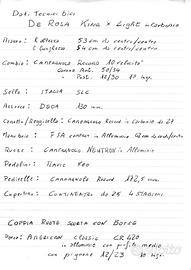 Dati Tecnici bici
DE ROSA KING X LIGHT in carbonio
Misure: h altezza 53 cm da centro/centro
L lunghezza 54 cm da centro/centro
Cambio: CAMPAGNOLO RECORD 10 velocità
Corona Ant. 50/34
Post. 12/30 10 vel.
Sella: ITALIA SLC
Attacco: DEDA 130 mm.
in Carbonio
Manubrio: FSA carbon in Alluminio
Ruote: CAMPAGNOLO NEUTRON in Alluminio
Pedalini: MAVIC
Pedivelle: CAMPAGNOLO Record 172,5 mm.
Copertura: CONTINENTAL da 25 4 STAGIONI
COPPIA RUOTE SCORTA CON BORCE
AMERICAN CLASSIC CR 420
in alluminio con profilo medio
con pignone 12/23 10 vel.